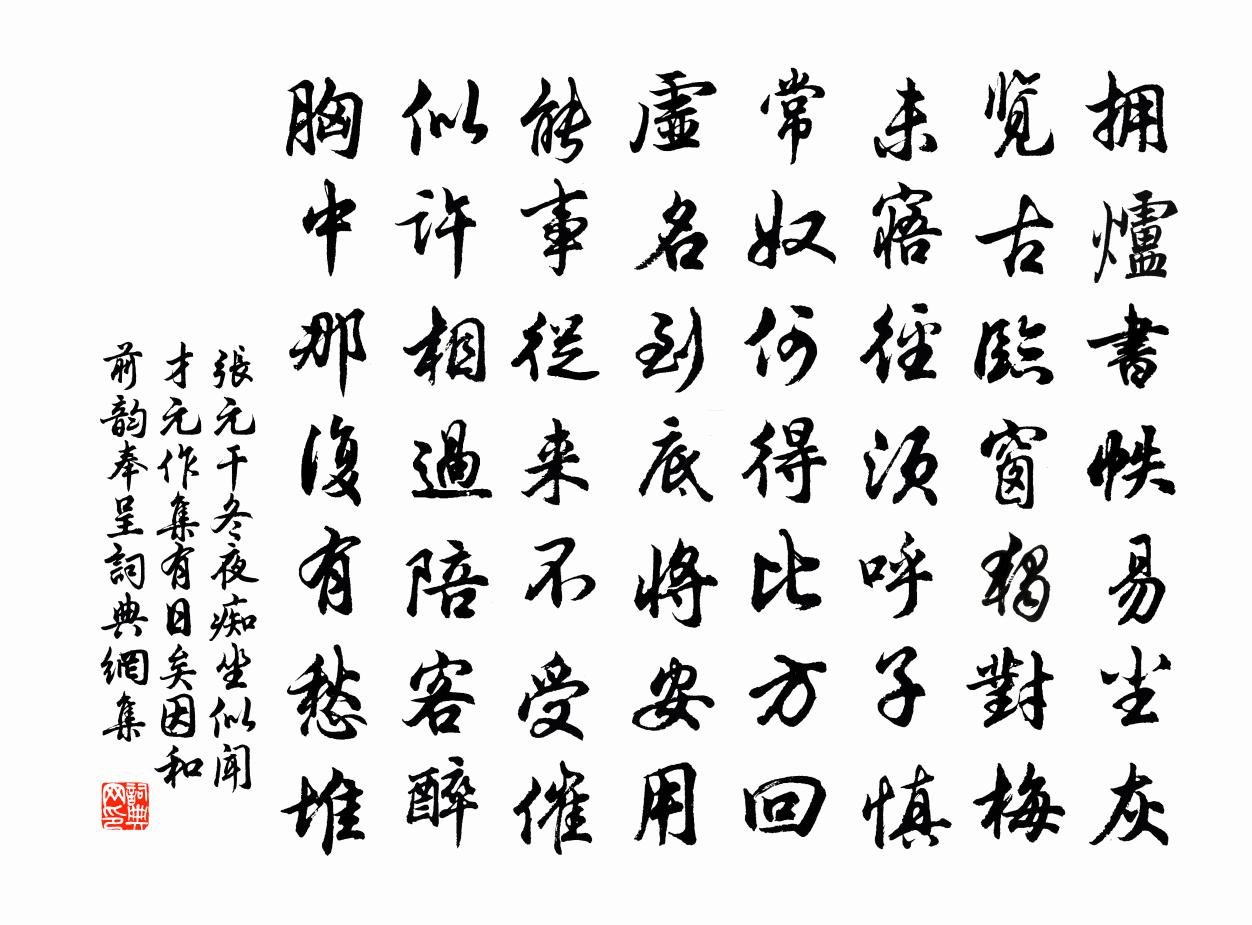 拥爐書帙易尘灰
覽古臨窗獨對梅
未寤徑須呼子慎
常奴何得比方回
虛名到底將安用
能事從来不受催
似許相過陪客醉
胸中那復有愁堆
張元干冬夜痴坐似聞
才元作集有日矣因和
前韵奉呈詞典網集
詞典
网印